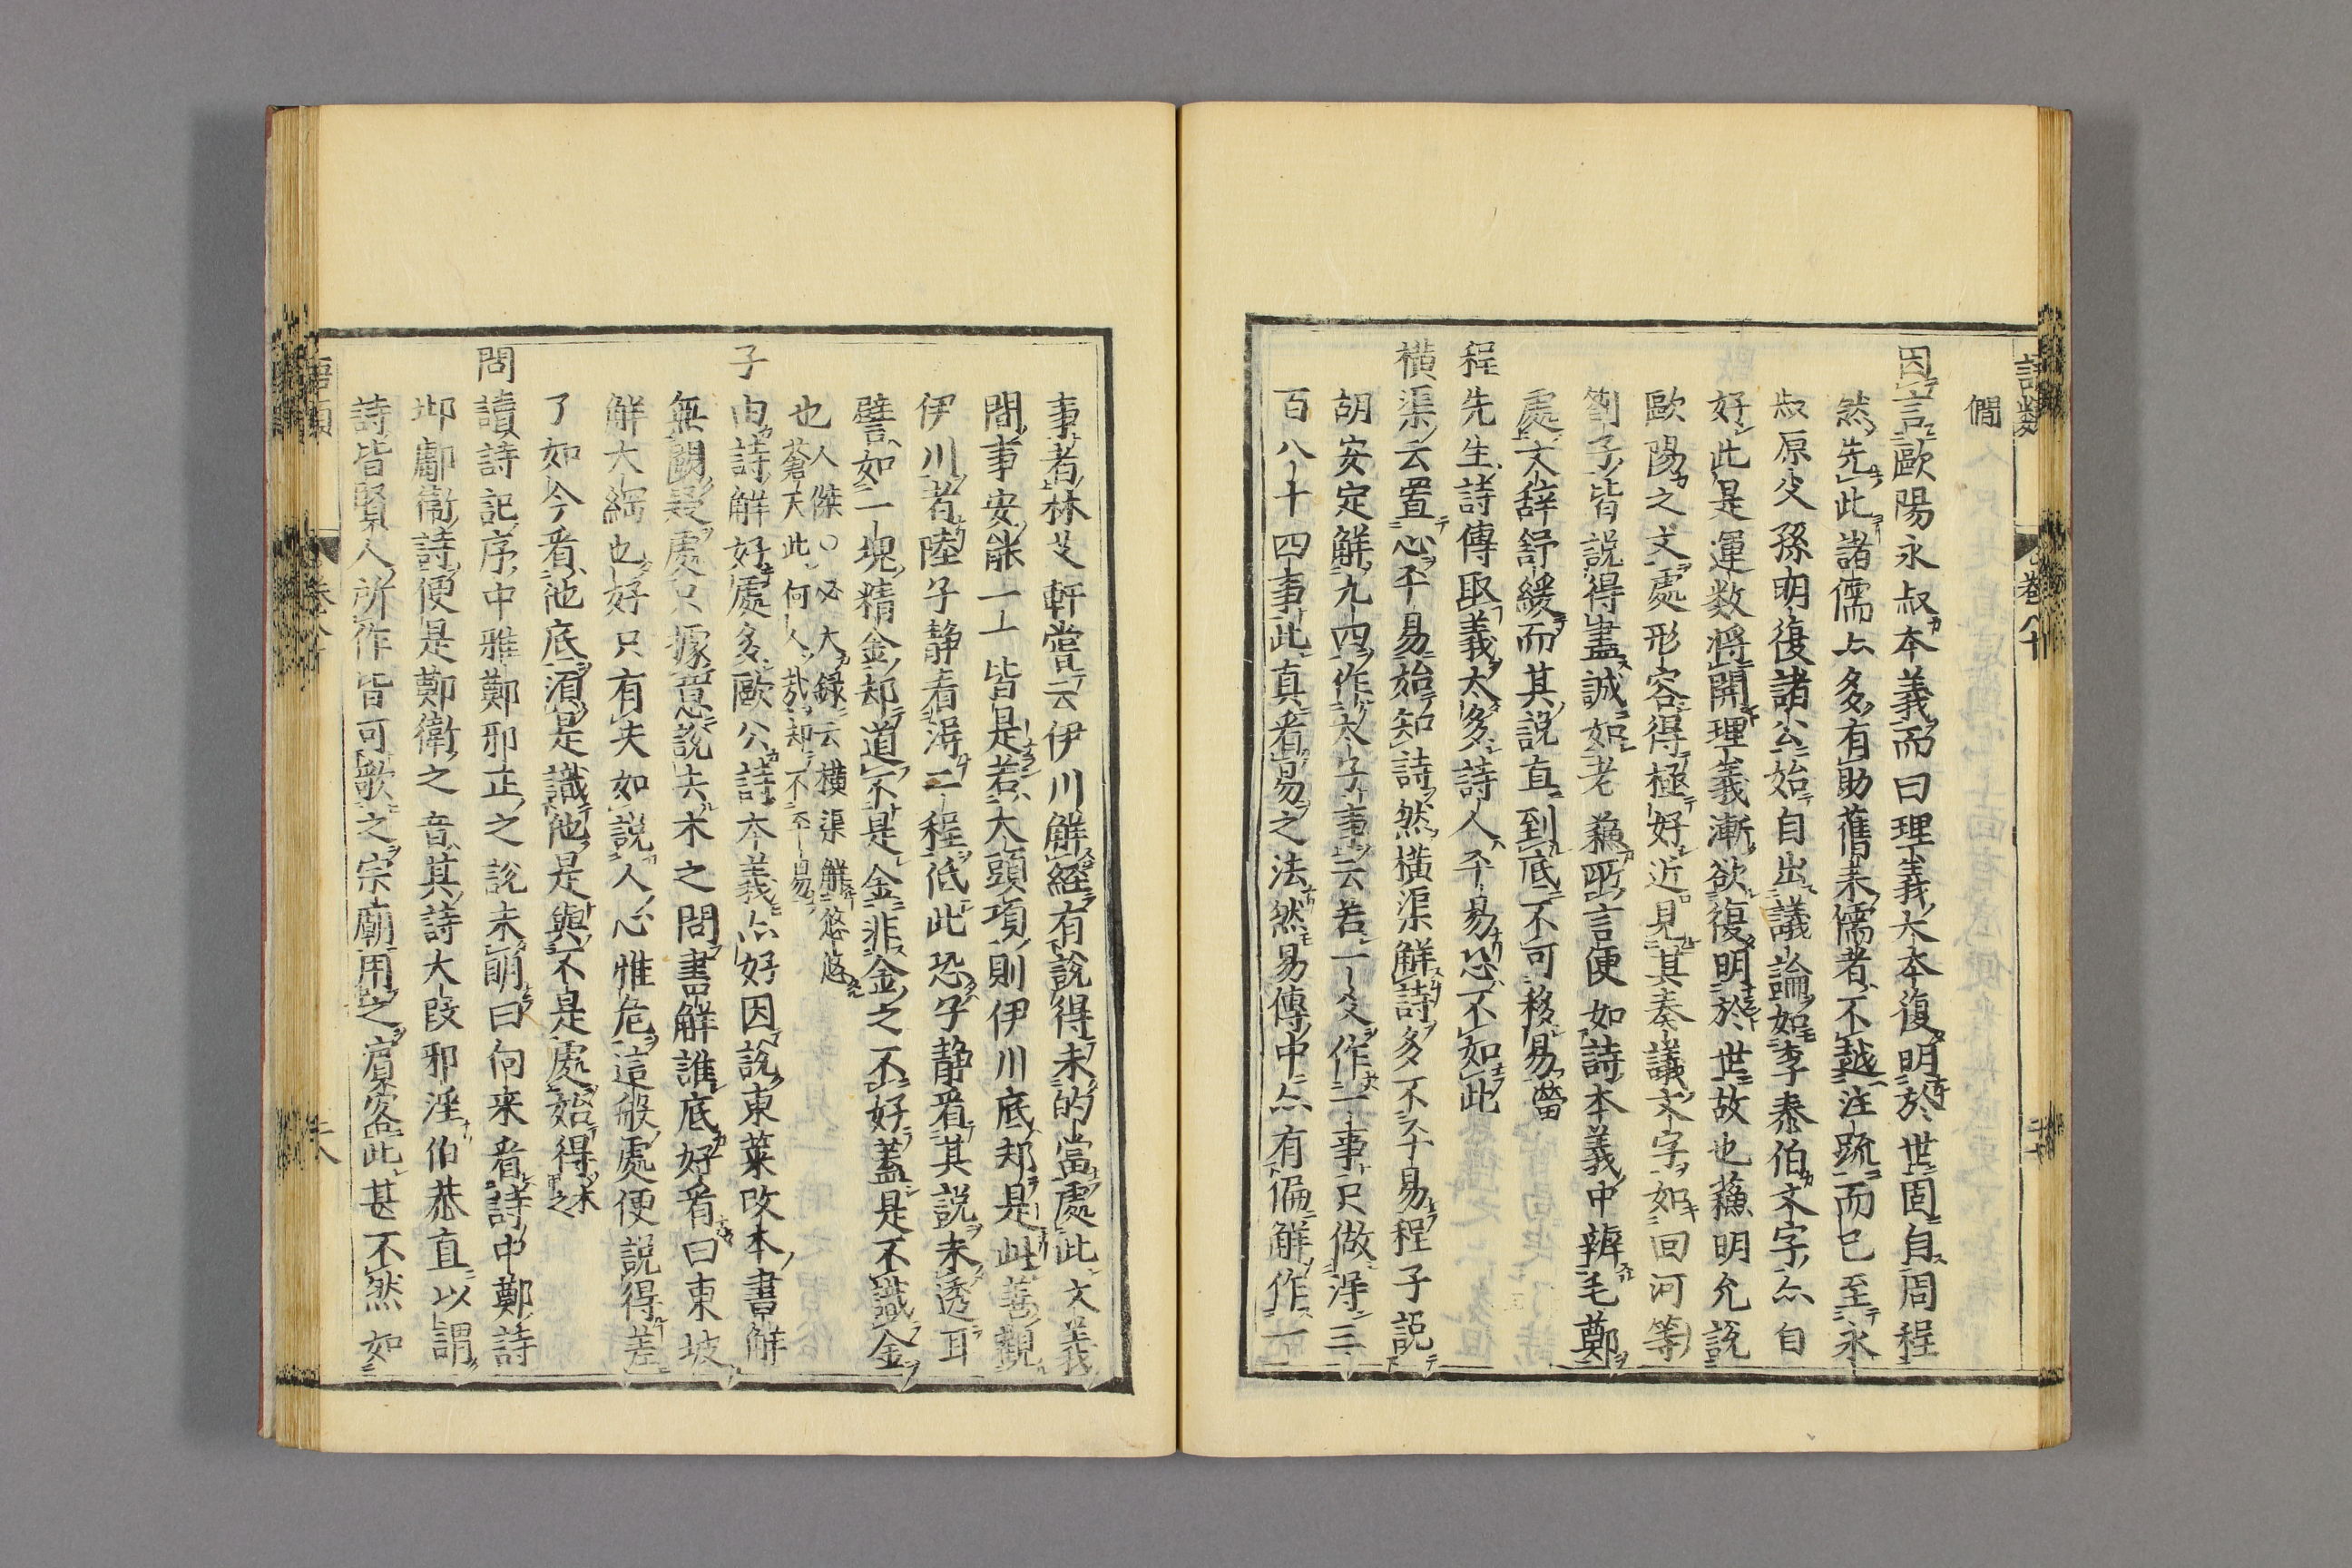 僩
因言歐陽永叔本義而曰理義大本復明於世固自周程
然先此諸儒亦多有助舊來儒者不越注疏而已至永
叔原父孫明復諸公始自出議論如李泰伯文字亦自
好此是運数將開理義漸欲復明於世故也蘓明允説
歐陽之文處形容得極好近見其奏議文字如回河等
劄子皆説得盡誠如老蘓所言便如詩本義中辨毛鄭
處文辞舒緩而其説直到底不可移易㽦
程先生詩傳取義太多詩人平易恐不如此
横渠云置心平易始知詩然横渠解詩多不平易程子説
胡安定解九四作太子事云若一爻作一事只做得三
百八十四事此真看易之法然易傳中亦有偏解作一
事者林艾軒嘗云伊川解經有説得未的當處此文義
間事安能一一皆是若大頭項則伊川底却是此善觀
伊川者陸子静看得二程低此恐子静看其説未透耳
譬如一塊精金却道不是金非金之不好蓋是不識金
也人傑○必大錄云横渠解悠悠
蒼天此何人哉却不平易
子由詩解好處多歐公詩本義亦好因説東萊改本書解
無闕疑處只據意説去木之問書解誰底好看曰東坡
解大綱也好只有失如説人心惟危這般處便説得差
了如今看他底須是識他是與不是處始得木之
問讀詩記序中雅鄭邪正之説未明曰向来看詩中鄭詩
邶鄘衛詩便是鄭衛之音其詩大段邪淫伯恭直以謂
詩皆賢人所作皆可歌之宗廟用之賓客此甚不然如